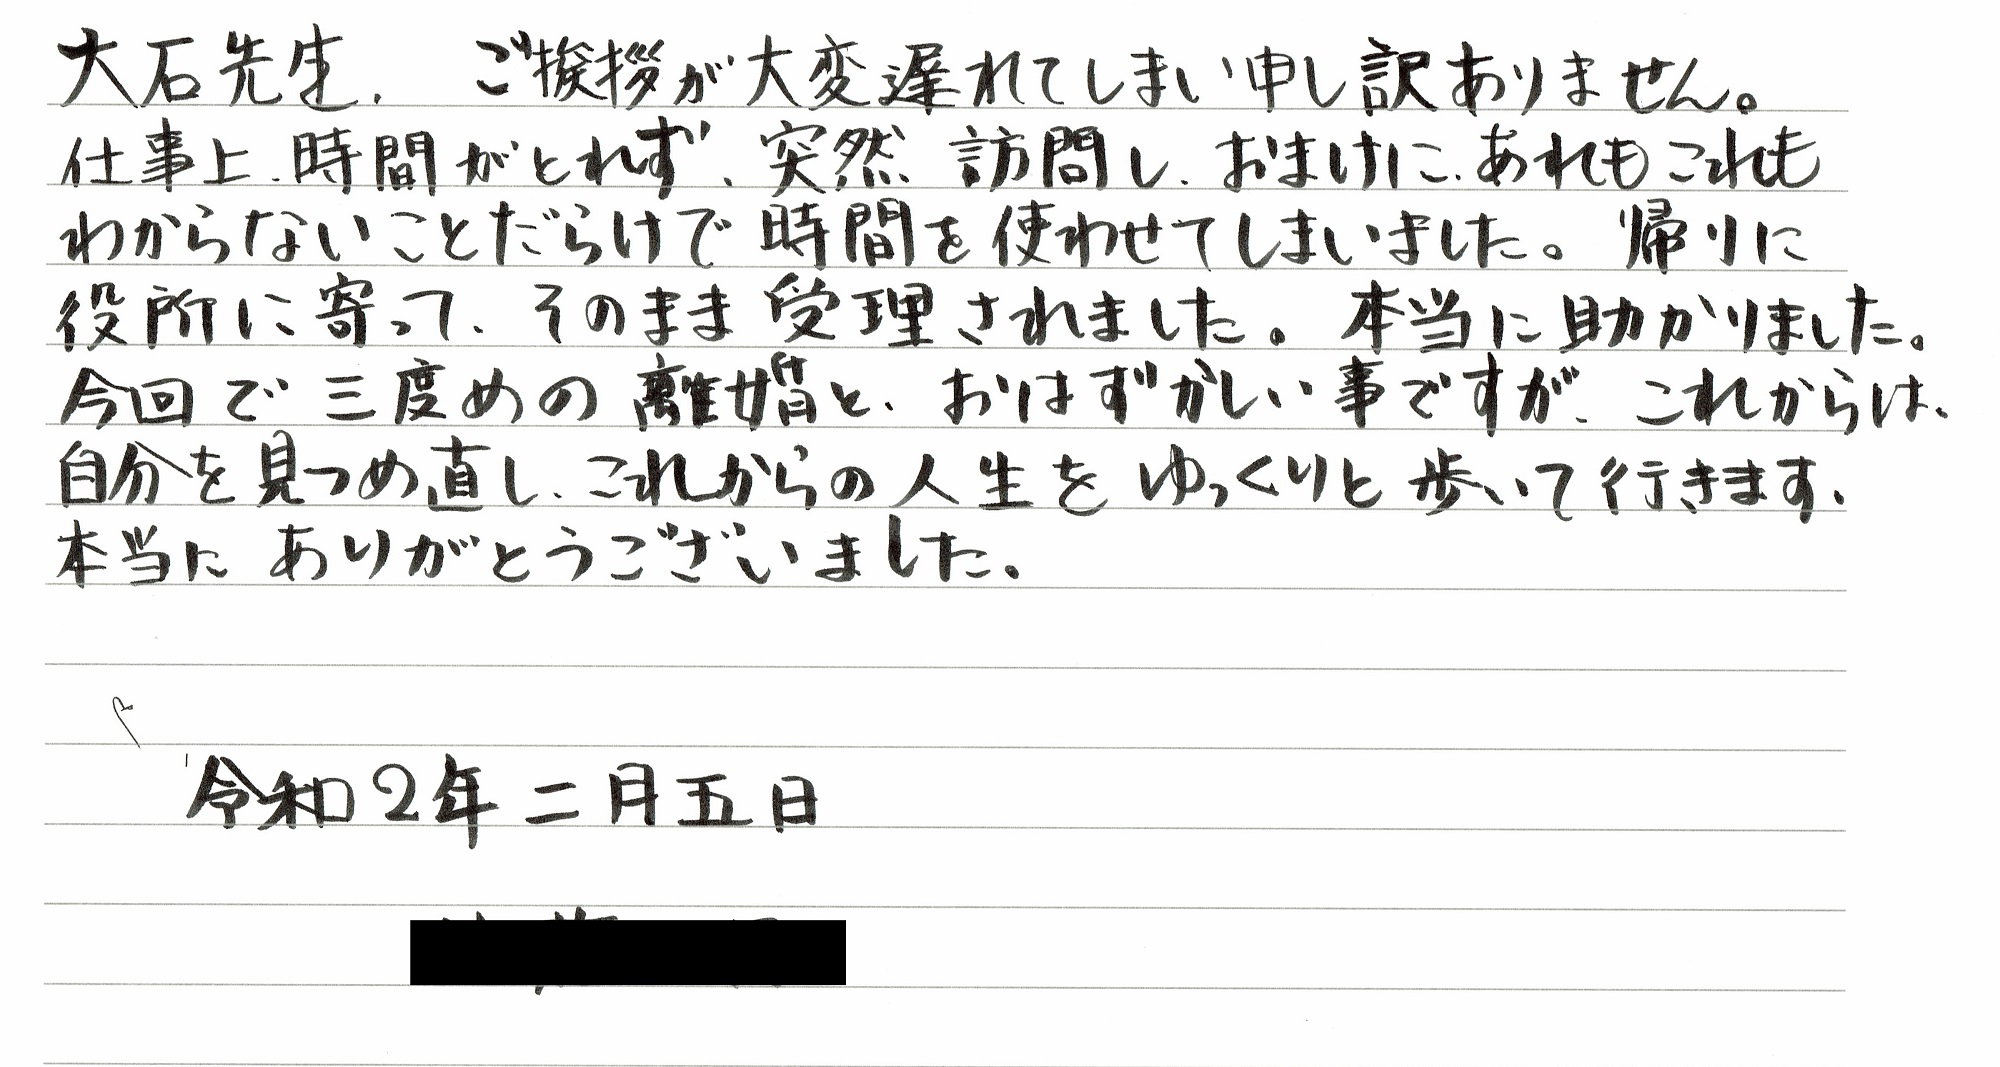 大石先生、 ご挨拶が大変遅れてしまい申し訳ありません。
仕事上、時間がとれず、突然 訪問し、おまけに、あれもこれも
わからないことだらけで時間を使わせてしまいました。帰りに
役所に寄って、そのまま受理されました。本当に助かりました。
今回で三度めの離婚と、おはずかしい事ですが、これからは、
自分を見つめ直し、これからの人生をゆっくりと歩いて行きます、
本当に ありがとうございました。
令和2年二月五日